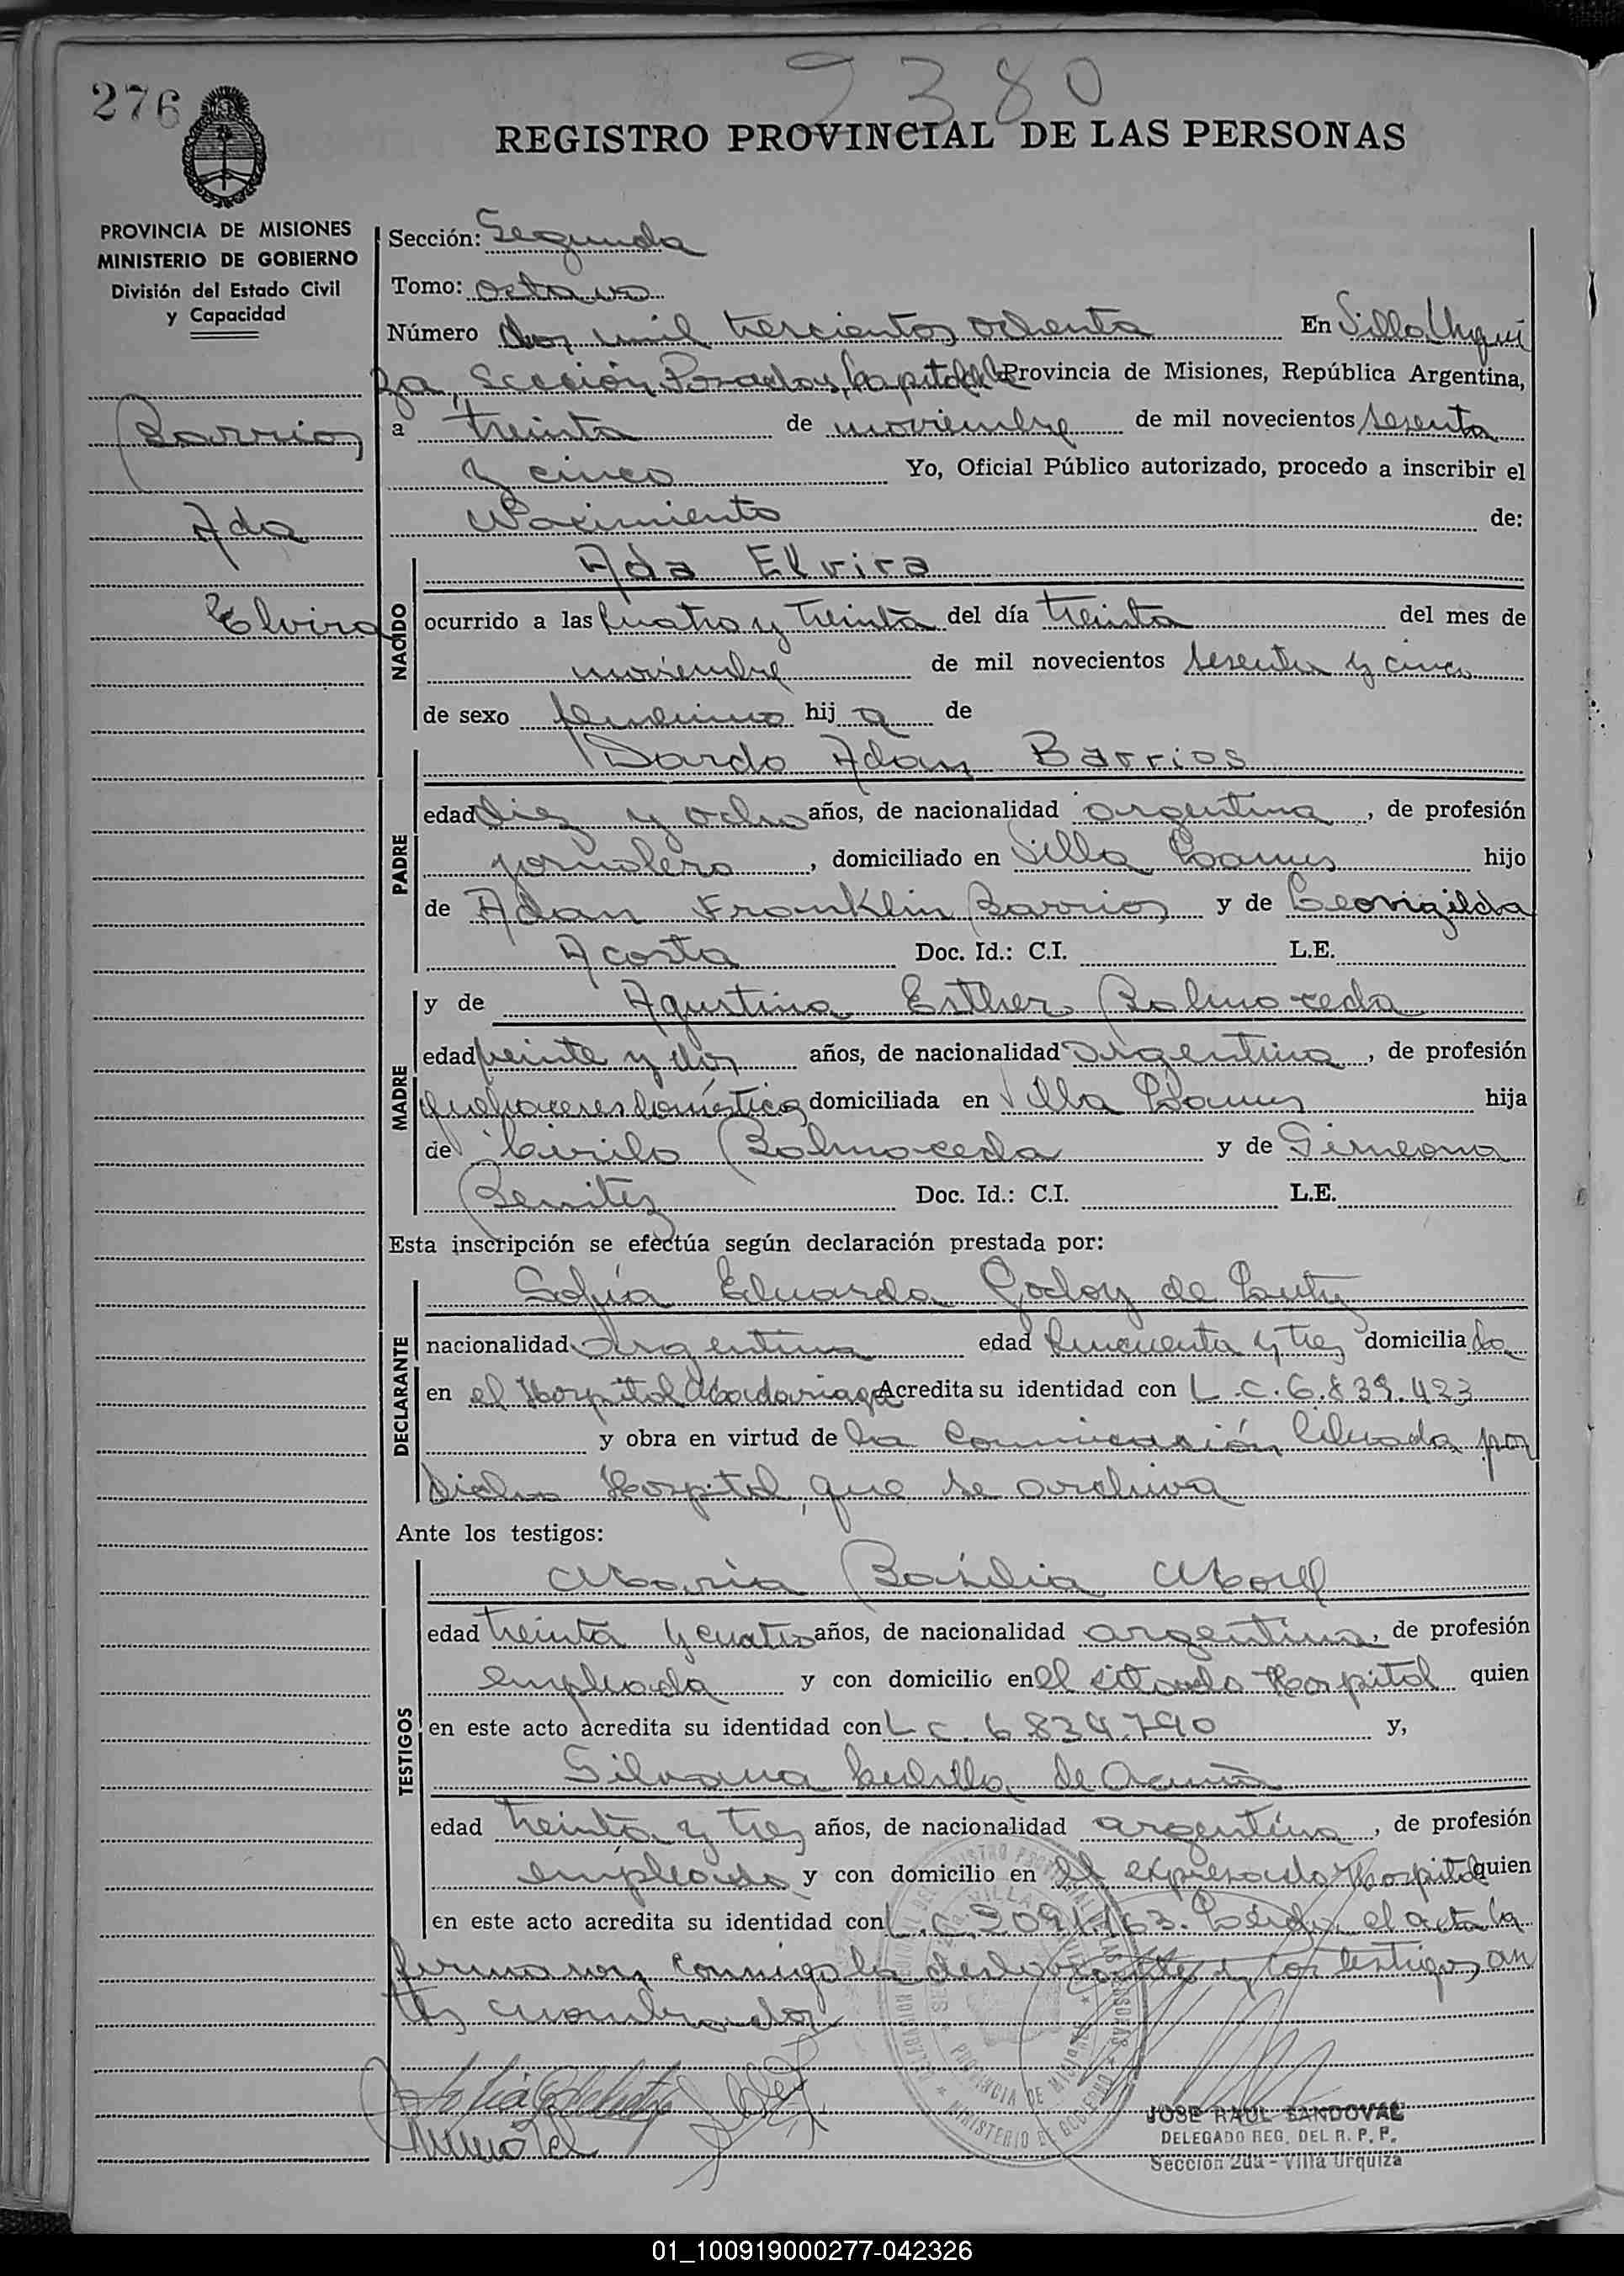 2380
276
REGISTRO PROVINCIAL DE LAS PERSONAS
PROVINCIA DE MISIONES
MINISTERIO DE GOBIERNO
División del Estado Civil
y Capacidad
Barrios
Ada
Elvira
Sección: Segunda
Tomo: octavo
Número dos mil trescientos ochenta En Villa Urqui
za, Sección Posadas, Capital de la Provincia de Misiones, República Argentina,
a treinta de noviembre de mil novecientos sesenta
y cinco Yo, Oficial Público autorizado, procedo a inscribir el
Nacimiento de:
NACIDO
Ada Elvira
ocurrido a las cuatro y treinta del día treinta del mes de
noviembre de mil novecientos sesenta y cinco
de sexo femenino hij a de
PADRE
Dardo Adan Barrios
edad diez y ocho años, de nacionalidad argentina, de profesión
jornalero, domiciliado en Villa Lanus hijo
de Adan Franklin Barrios y de Leovigilda
Acosta Doc. Id.: C.I. L.E.
MADRE
y de Agustina Esther Balmaceda
edad veinte y dos años, de nacionalidad argentina, de profesión
quehaceres domésticos domiciliada en Villa Lanus hija
de Cirilo Balmaceda y de Simeona
Benitez Doc. Id.: C.I. L.E.
Esta inscripción se efectúa según declaración prestada por:
DECLARANTE
Sofía Eduarda Godoy de
nacionalidad argentina edad cincuenta y tres domicilia da
en el Hospital Madariaga Acredita su identidad con L.C. 6.839.423
y obra en virtud de la comunicación librada por
dicho Hospital, que se archiva
Ante los testigos:
TESTIGOS
Maria Basilia
edad treinta y cuatro años, de nacionalidad argentina, de profesión
empleada y con domicilio en el citado Hospital quien
en este acto acredita su identidad con L.C. 6.834.790 y,
Silvana de Acuña
edad treinta y tres años, de nacionalidad argentina, de profesión
empleada y con domicilio en el expresado Hospital quien
en este acto acredita su identidad con L.C. Leida el acta la
firman conmigo la declarante y los testigos an
tes nombrados
JOSE RAUL SANDOVAL
DELEGADO REG. DEL R. P. P.
Sección 2da - Villa Urquiza
01_100919000277-042326